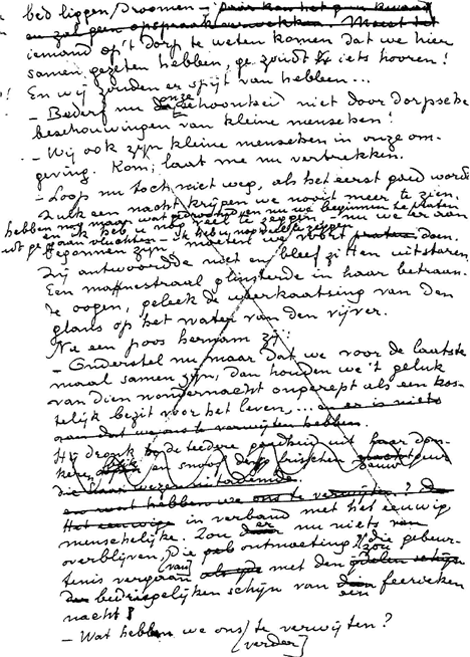 bed liggen droomen – Dat kan het geen kwaad
en zal geen opspraak verwekken. Moest het
iemand op 't dorp te weten komen dat we hier
samen gezeten hebben, ge zoudt iets hooren!
En wij zouden er spijt van hebben...
– Bederf nu onze schoonheid niet door dorpsche
beschouwingen van kleine menschen!
– Wij ook zijn kleine menschen in onze om-
geving. Kom, laat me nu vertrekken.
– Loop nu toch niet weg, als het eerst goed wordt
Zulk een nacht krijgen we nooit meer te zien.
hebben nog maar wat nu we beginnen te praten
en ik heb u nog veel te zeggen – nu we er aan
begonnen zijn moeten we voort doen.
Zij antwoordde niet en bleef zitten uitstaren,
Een manestraal glinsterde in haar betraan-
de oogen, geleek de weerkaatsing van den
glans op het water van den vijver.
Na een poos hernam zij:
– Onderstel nu maar dat we voor de laatste
maal samen zijn, dan houden we 't geluk
van dien wondernacht ongerept als een kos-
telijk bezit voor het leven, ... en er is niets
waar dat we ons te verwijten hebben.
Hij dronk de teedere goedheid uit haar don-
kere en snoof den frisschen geur
die haar wezen uitademde
en wat hebben we ons te verwijten?
Het eeuwige in verband met het eeuwig
menschelijke. Zou er nu niets van
overblijven, die ontmoeting, zou die gebeur-
tenis vergaan met den
bedriegelijken schijn van een feeërieken
nacht?
– Wat hebben we ons te verwijten?
verder